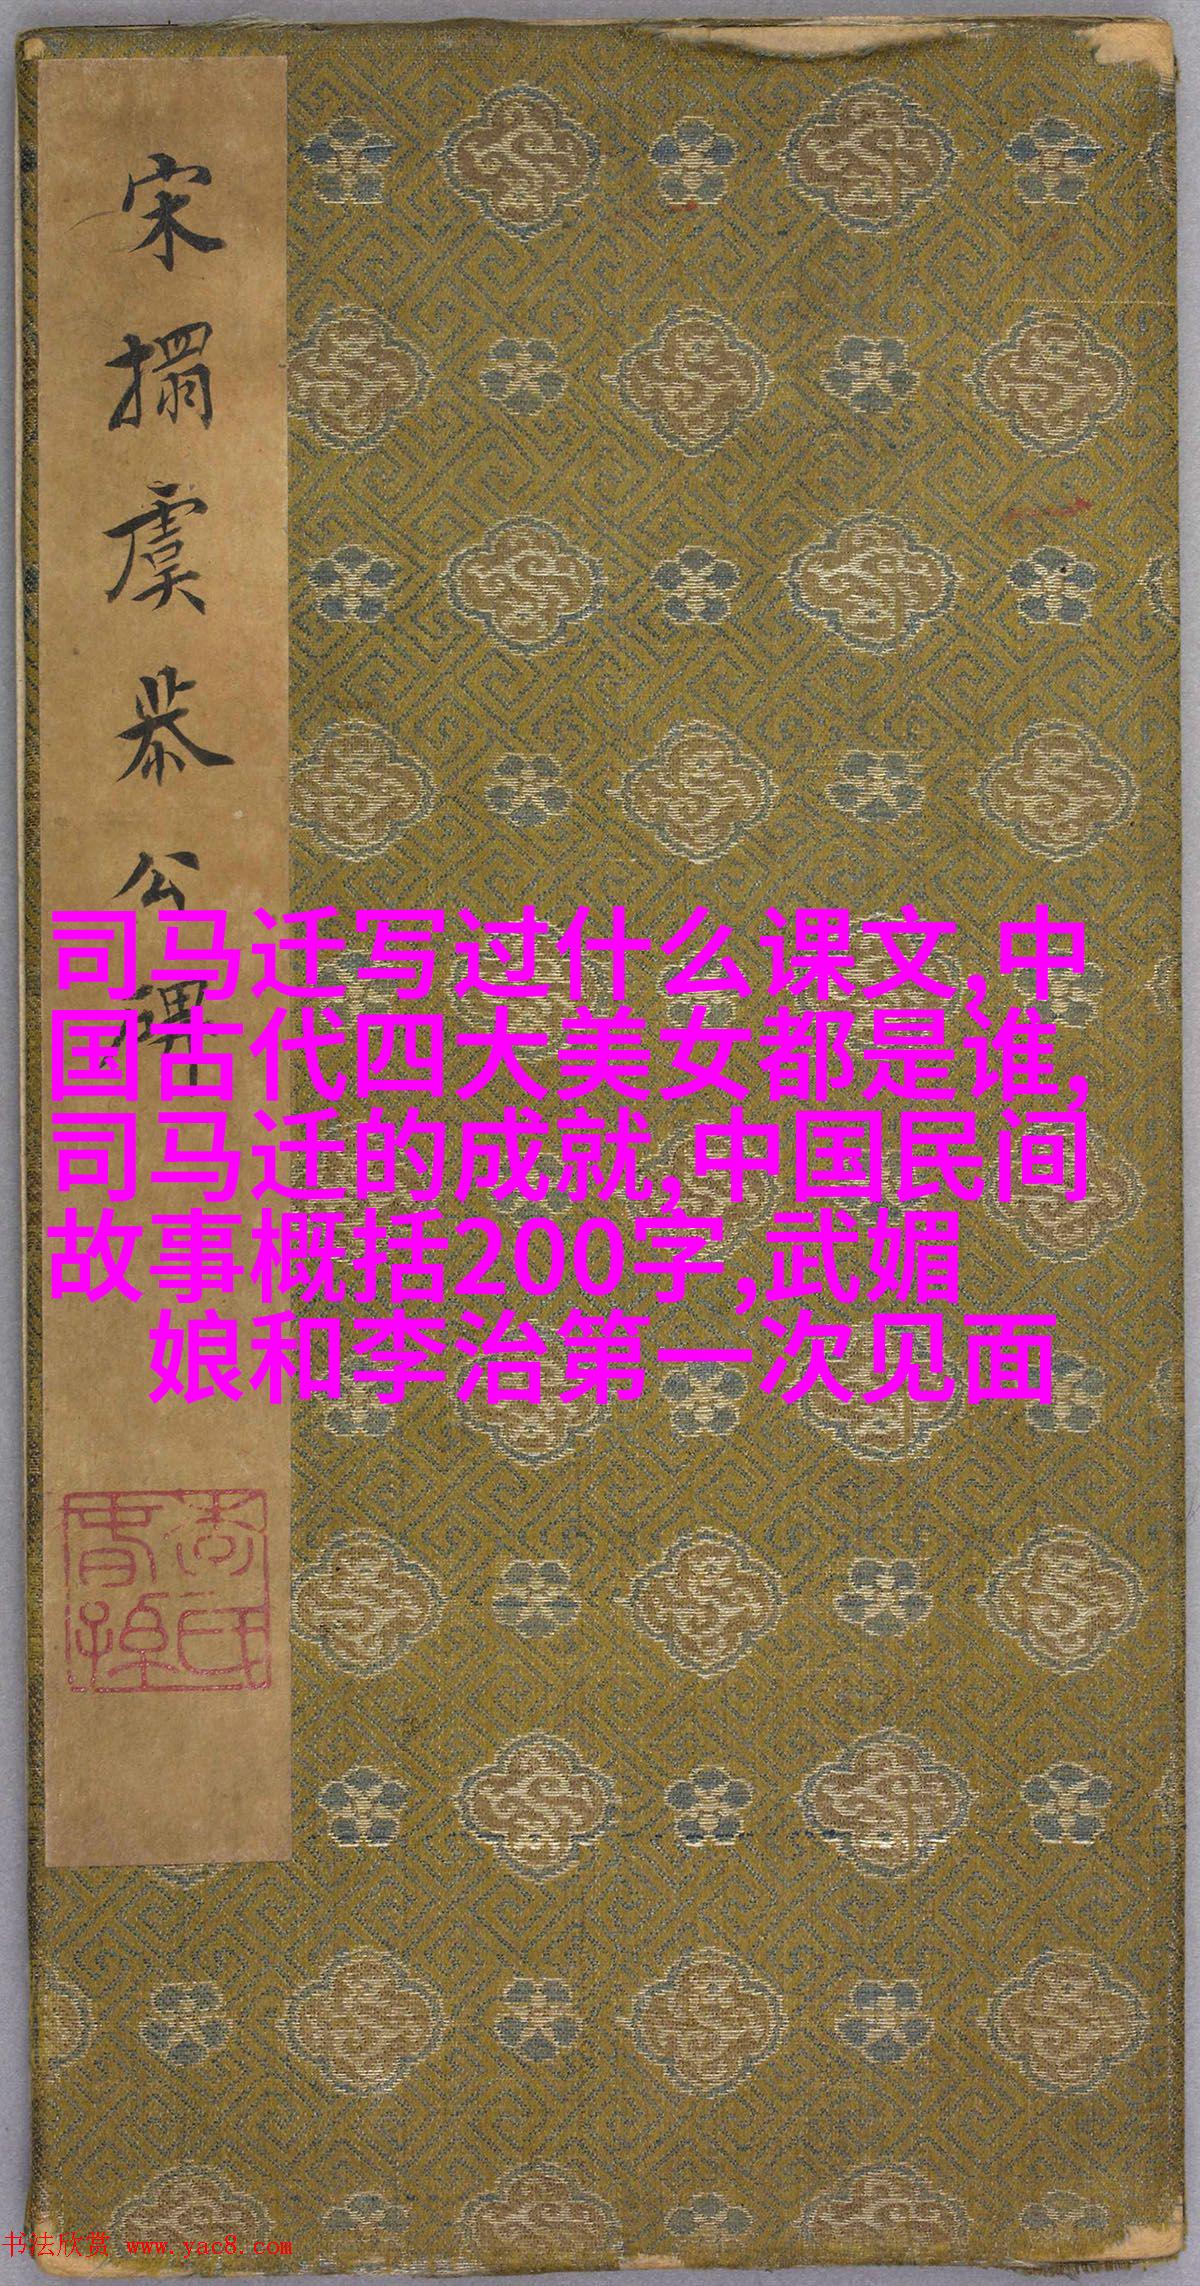 宋搨虞恭公碑
司马迁写过什么课文,中
国古代四大美女都是谁,
司马迁的成就,中国民间
故事概括200字,武媚
娘和李治第一次见面
书法欣赏 www.yac8.com